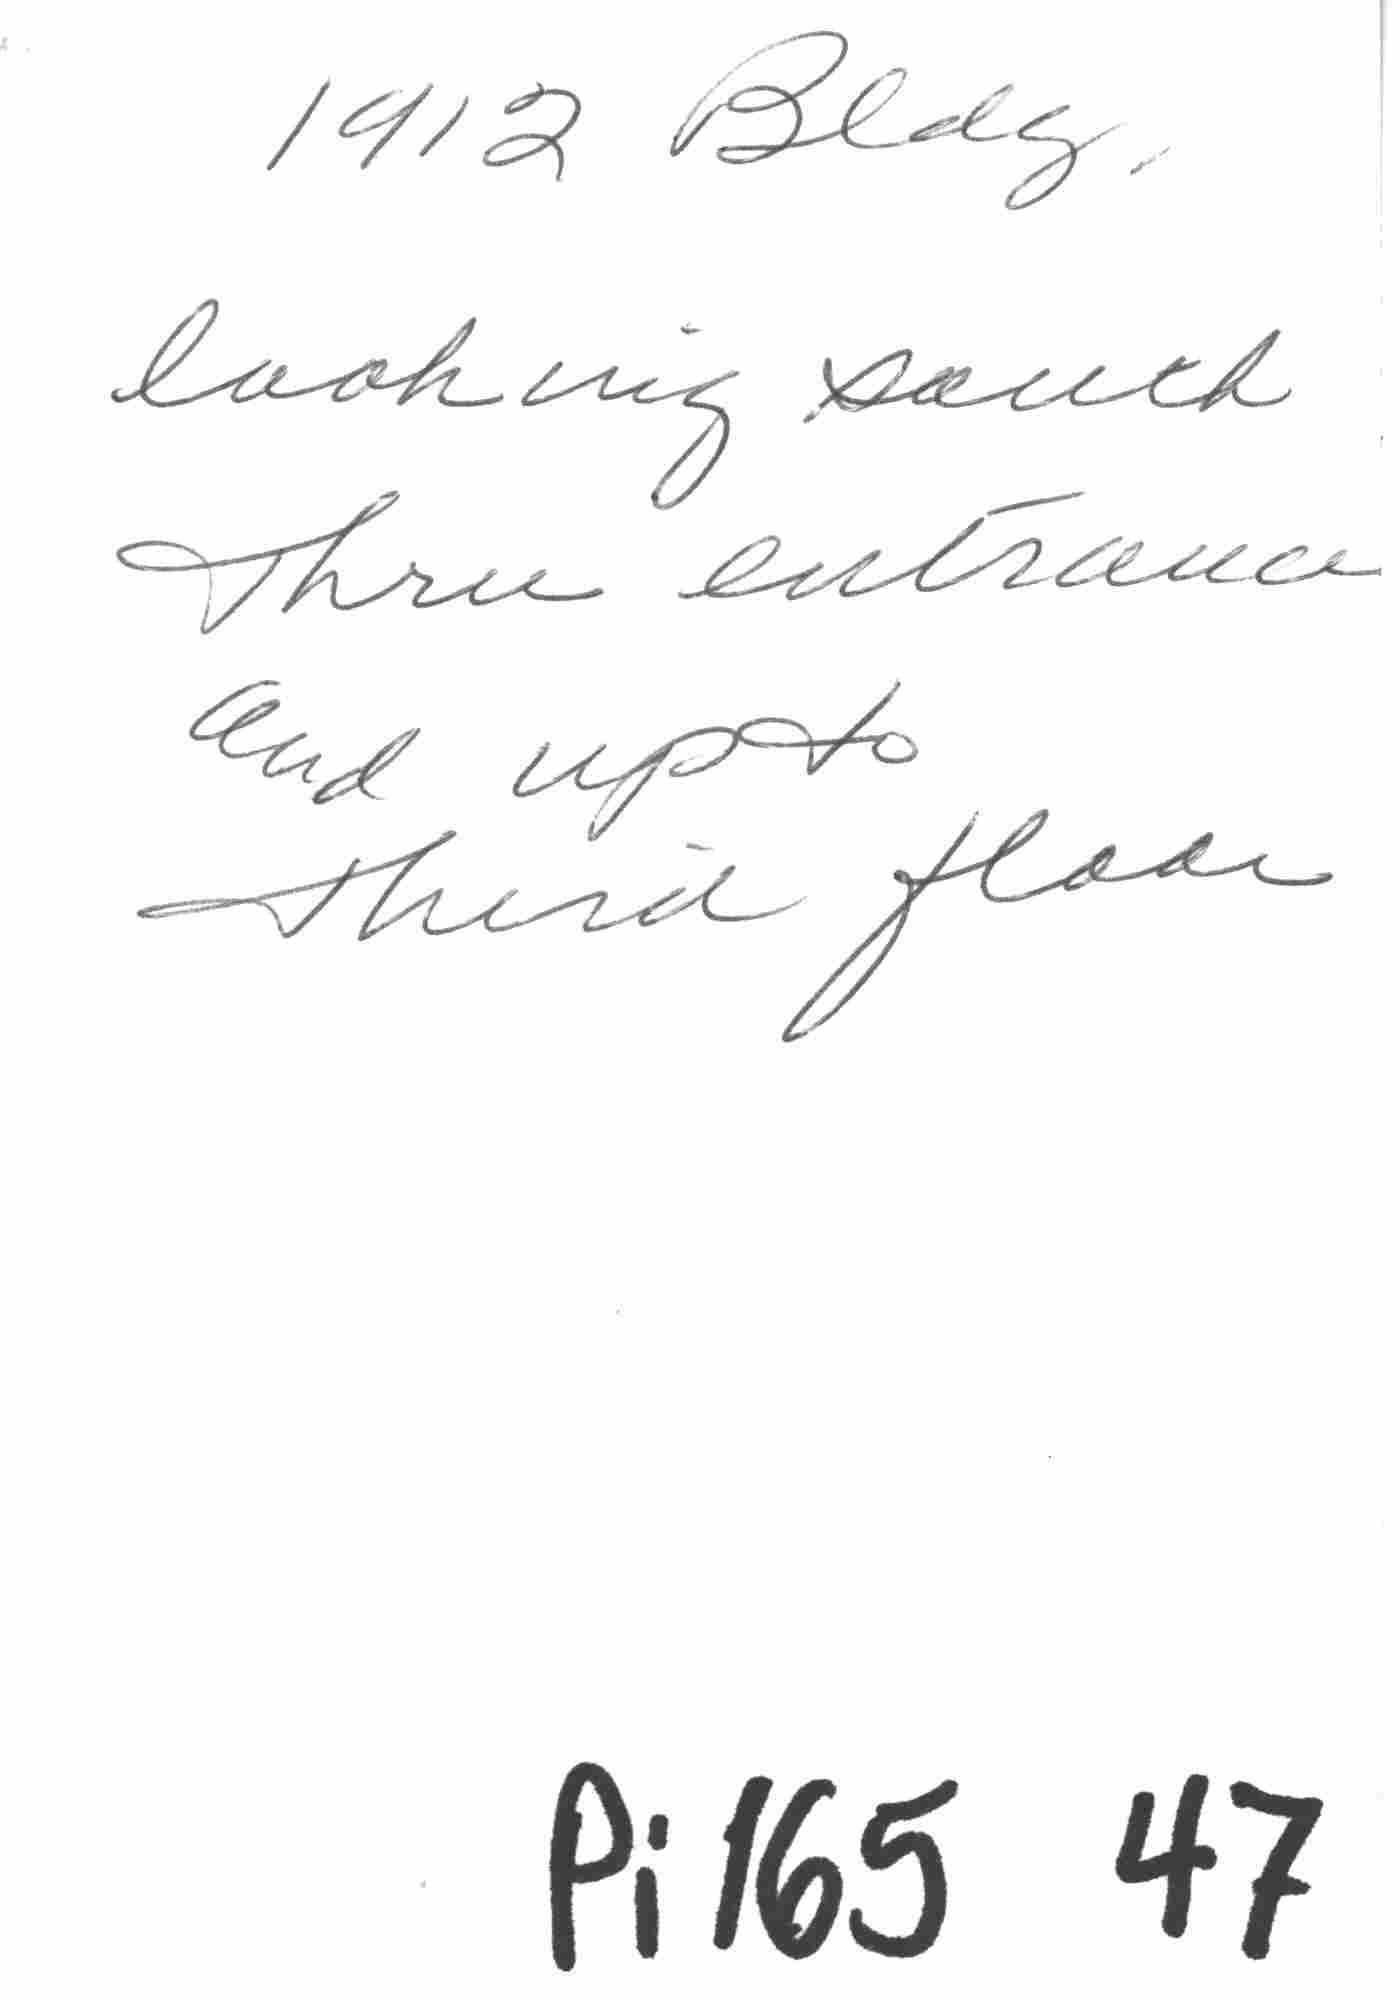 1912 Bldg.
looking south
thru entrance
and up to
third floor
Pi 165 47